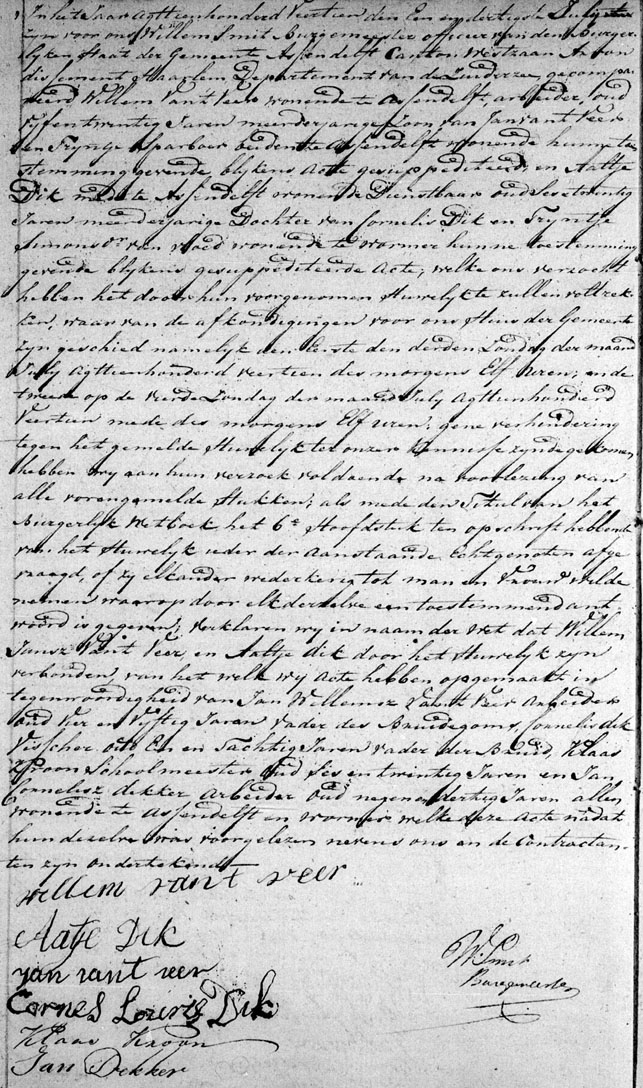 In het Jaar Agttienhonderd Veertien den Een en dertigste July
zyn voor ons Willem Smit Burgemeester officier van den Burger
lyken Staat der Gemeente Assendelft Canton Westzaan Arron
dissement Haarlem Departement van de Zuiderzee, gecompa
reerd Willem Van't Veer wonende te Assendelft, arbeider, oud
vyfentwintig Jaren meerderjarige Zoon van Jan van't Veer
en Tryntje beidente Assendelft wonende hunne toe
stemming gevende, blykens Acte gesuppediteerd, en Aaltje
Dik mede te Assendelft wonende Dienstbaar oud twintig
Jaren meerderjarige Dochter van Cornelis Dik en Tryntje
Simons dr van wonende te Wormer hunne toestemming
gevende blykens gesuppediteerde Acte, welke ons verzocht
hebben het door hun voorgenomen Huwelyk te zullen voltrek
ken, waar van de afkondigingen voor ons Huis der Gemeente
zyn geschied namelyk den Eerste den derden Zondag der maand
July Agttienhonderd veertien des morgens Elf uren, en de
tweede op de Vierde Zondag der maand July Agttienhonderd
Veertien mede des morgens Elf uren; gene verhindering
tegen het gemelde Huwelyk tot onzer kennisse zynde gekomen
hebben wy aan hun verzoek voldaende na voorlezing van
alle vorengemelde Stukken, als mede den Titul van het
Burgerlyk Wetboek het 6e Hoofdstuk ten opschrift hebbende
van het Huwelyk ieder der Aanstaande Echtgenoten afge
vraagd, of zy elkander wederkerig tot man en Vrouw wilde
nemen waarop door elk derzelve een toestemmend ant
woord is gegeven, verklaren wy in naam der Wet dat Willem
Jansz Van't Veer, en Aaltje Dik door het Huwelyk zyn
verbonden van het welk wy Acte hebben opgemaakt in
tegenwoordigheid van Jan Willemsz Van't Veer Arbeider
oud Vier en Vyftig Jaren vader des Bruidegoms, Cornelis Dik
Visscher oud Een en Tachtig Jaren vader der Bruid, Klaas
Kroon Schoolmeester Oud Ses en twintig Jaren en Jan
Cornelisz Dekker Arbeider Oud negenendertig Jaren allen
wonende te Assendelft en Wormer welke deze Acte nadat
hun dezelve was voorgelezen nevens ons en de Contractan
ten zyn ondertekend
willem vant veer
Aatje Dik
yan vant veer
Cornes Louwsz Dik
Klaas Kroon
Jan Dekker
W Smit
Burgemeester